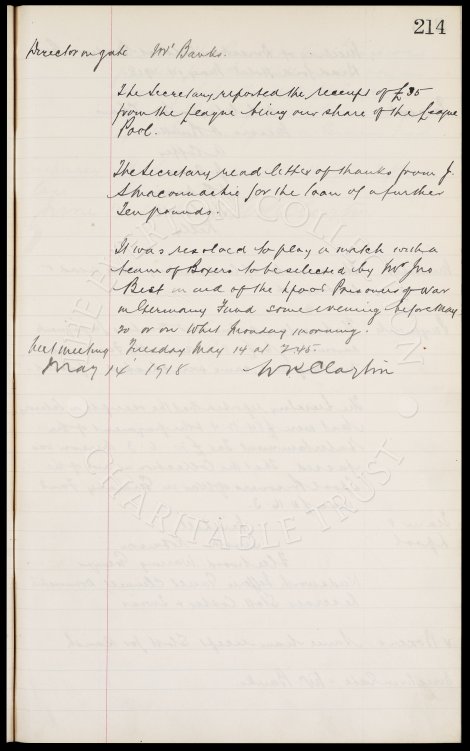 214
Director on gate Mr Banks.
The Secretary reported the receipt of £35
from the League being our share of the League
Pool.
The Secretary read letter of thanks from J.
S Maconnachie for the loan of a further
Ten pounds.
It was resolved to play a match with a
team of Boxers to be selected by Mr Jno
Best in aid of the Lpool Prisoners of War
in Germany Fund some evening before May
20 or on Whit Monday morning.
Next meeting Tuesday May 14 at 2-45.
May 14 1918 W R Clayton
THE EVERTON COLLECTION
CHARITABLE TRUST